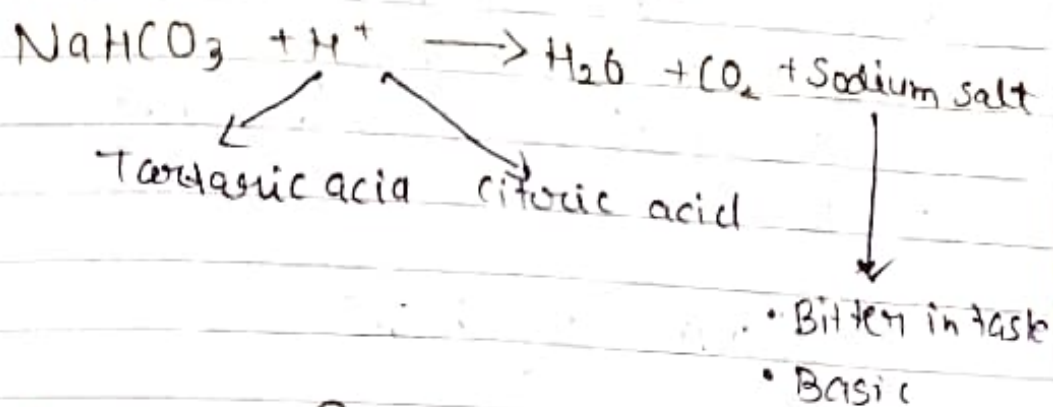 NaHCO3 + H+ → H2O + CO2 + Sodium salt
Tartaric acid citric acid
• Bitter in task
• Basic